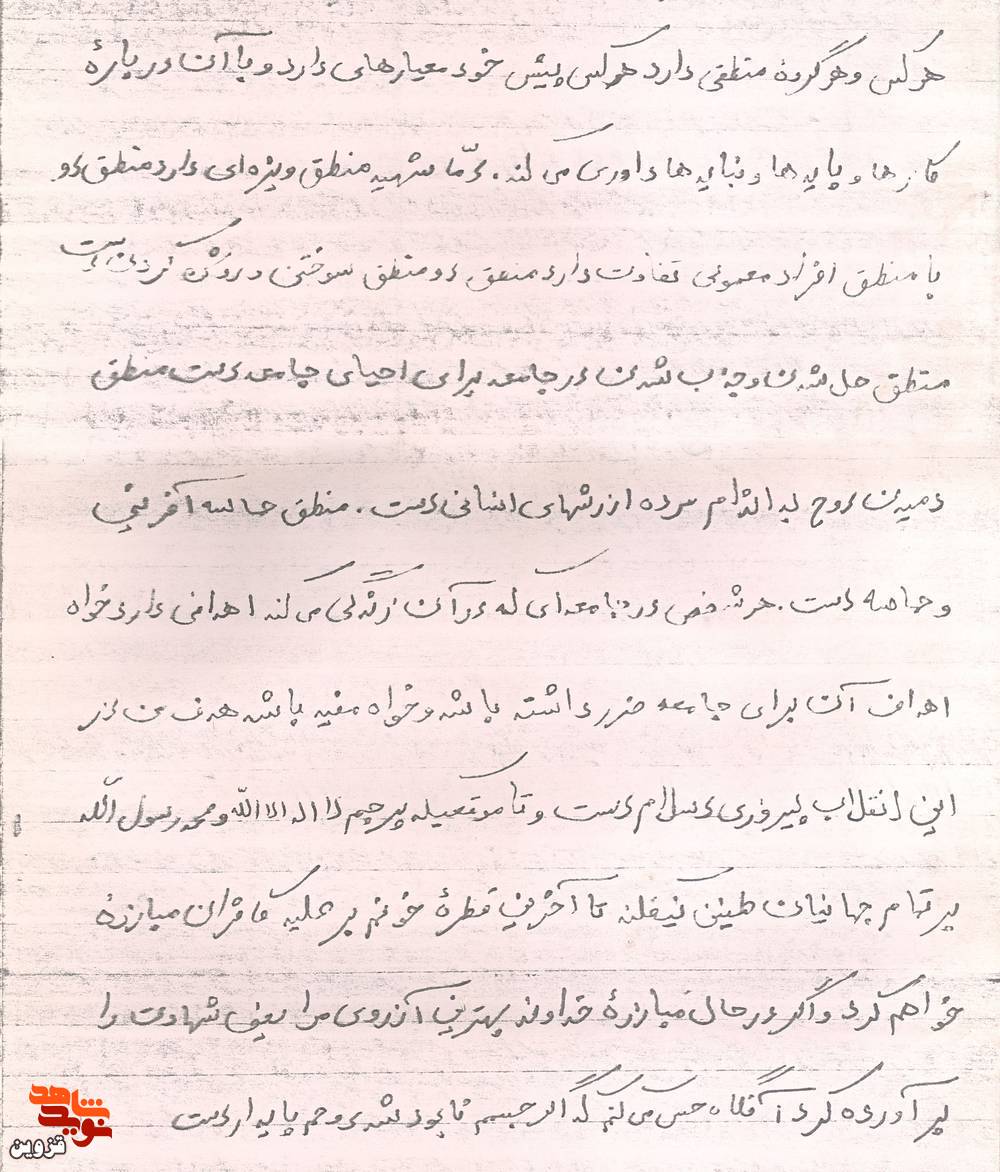 هر کس و هر گروه منطقی دارد هر کس پیش خود معیارهای دارد و با آن درباره
کارها و باید ها و نباید ها داوری می کند. امّا شهید منطق ویژه ای دارد منطق او
با منطق افراد معمولی تفاوت دارد منطق او منطق سوختن و روشن کردن است
منطق حل شدن و جذب شدن در جامعه برای احیای جامعه است منطق
دمیدن روح به اندام مرده ارزشهای انسانی است. منطق حماسه آفرینی
و حماسه است. هر شخص در جامعه ای که در آن زندگی می کند اهدافی دارد خواه
اهداف آن برای جامعه ضرر داشته باشد و خواه مفید باشد هدف من از
این انقلاب پیروزی اسلام است و تا موقعیکه پرچم لا اله الا الله و محمد رسول الله
بر تمام جهانیان طنین نیفکند تا آخرین قطرهٔ خونم بر علیه کافران مبارزهٔ
خواهم کرد و اگر در حال مبارزهٔ خداوند بهترین آرزوی مرا یعنی شهادت را
بر آورده کرد آنگاه حس می کنم که اگر جسم نابود شد روحم پایدار است
شاهد
نوید
قزوین